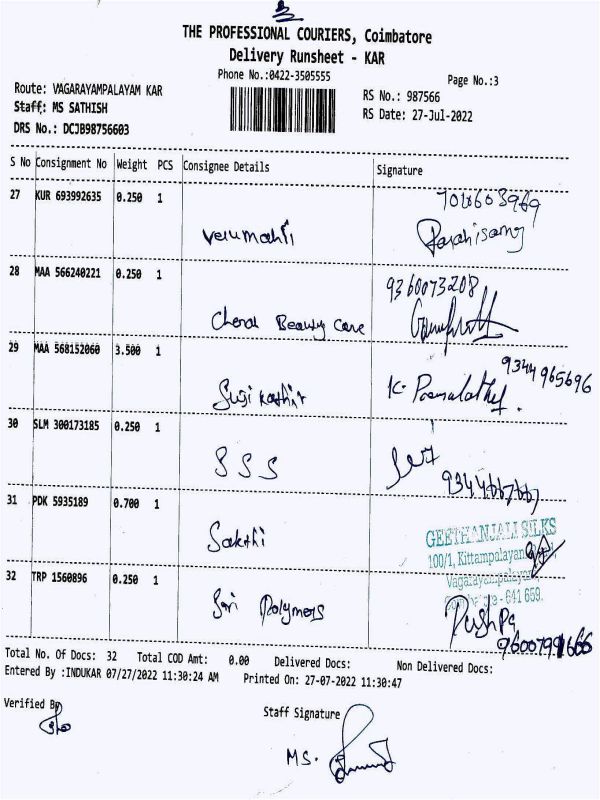 THE PROFESSIONAL COURIERS, Coimbatore
Delivery Runsheet - KAR
Phone No.:0422-3505555
Page No.:3
Route: VAGARAYAMPALAYAM KAR
RS No.: 987566
Staff: MS SATHISH
RS Date: 27-Jul-2022
DRS No.: DCJB98756603
S No Consignment No Weight PCS Consignee Details Signature
27 KUR 693992635 0.250 1
Velumani
28 MAA 566240221 0.250 1
9360073208
Cheran Beauty Care
29 MAA 568152060 3.500 1
9344965696
Suji Kathir K. Premalatha.
30 SLM 300173185 0.250 1
S S S
9344667667
31 PDK 5935189 0.700 1
Sakthi
GEETHANJALI SILKS
100/1, Kittampalayam
Vagarayampalayam
Coimbatore - 641 659.
32 TRP 1560896 0.250 1
Sri Polymers Pushpa
96007991666
Total No. Of Docs: 32 Total COD Amt: 0.00 Delivered Docs: Non Delivered Docs:
Entered By :INDUKAR 07/27/2022 11:30:24 AM Printed On: 27-07-2022 11:30:47
Verified By
Staff Signature
MS.